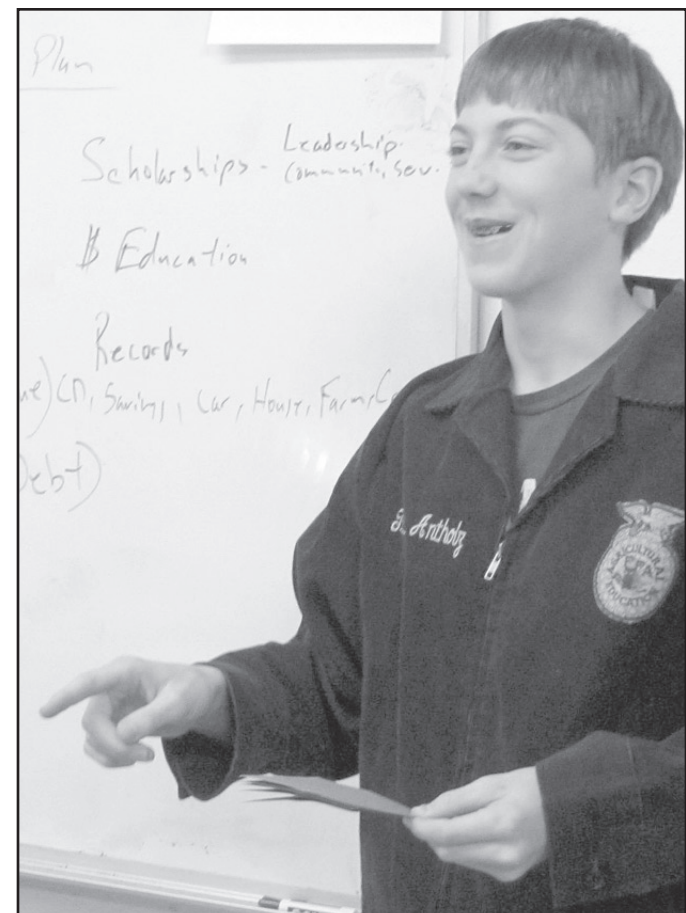 Plan
Scholarships - Leadership
Community Serv.
$ Education
Records
CD, Savings, Car, House, Farm,
Debt)
Antholz
AGRICULTURAL
EDUCATION